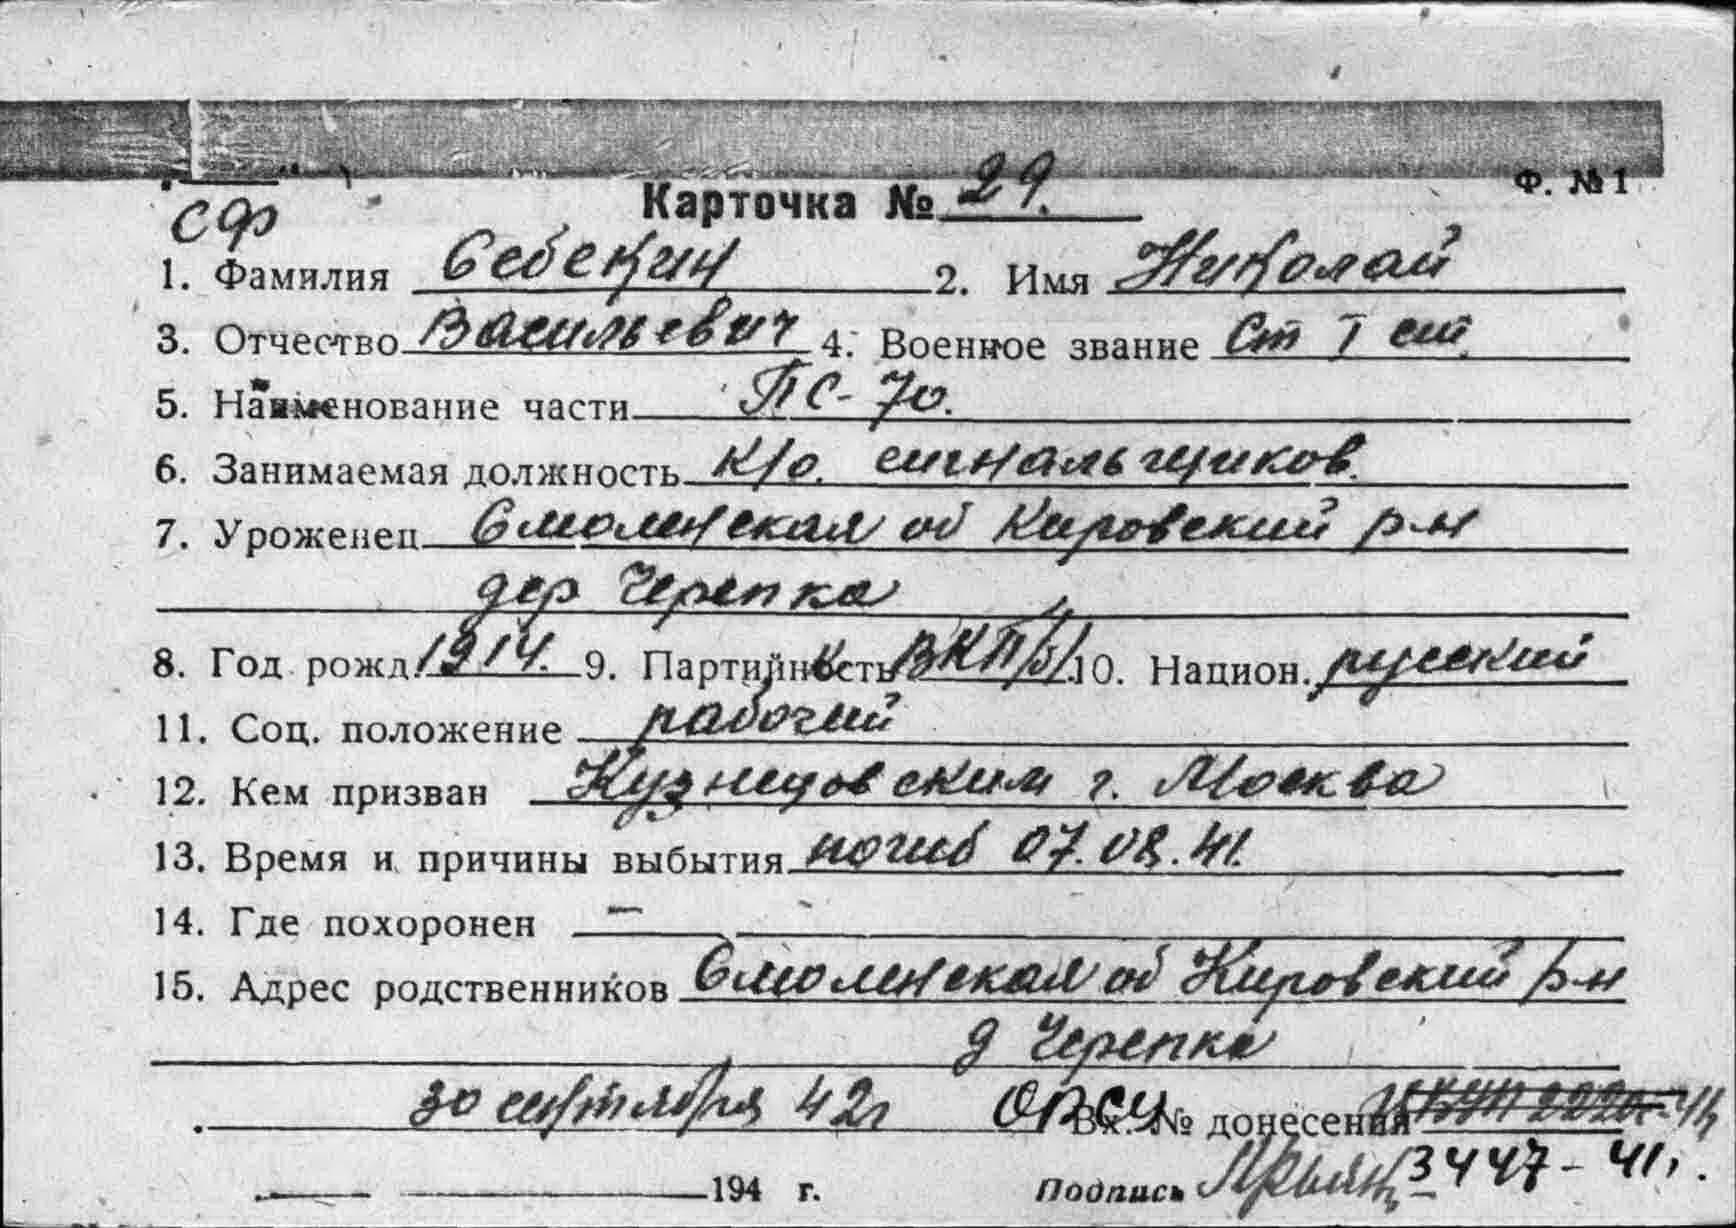 Ф. № 1
Карточка № 29.
СФ
1. Фамилия Себекин 2. Имя Николай
3. Отчество Васильевич 4. Военное звание Ст I ст.
5. Наименование части ПС-70.
6. Занимаемая должность К/о. сигнальщиков.
7. Уроженец Смоленская об Кировский р-н
дер Черепка
8. Год рожд. 1914. 9. Партийность ВКП/б/ 10. Национ. русский
11. Соц. положение рабочий
12. Кем призван Кузнецовским г. Москва
13. Время и причины выбытия погиб 07.08.41.
14. Где похоронен —
15. Адрес родственников Смоленская об Кировский р-н
д Черепка
30 сентября 42г ОРСУ Вх. № донесения
194 г. Подпись 3447-41г.